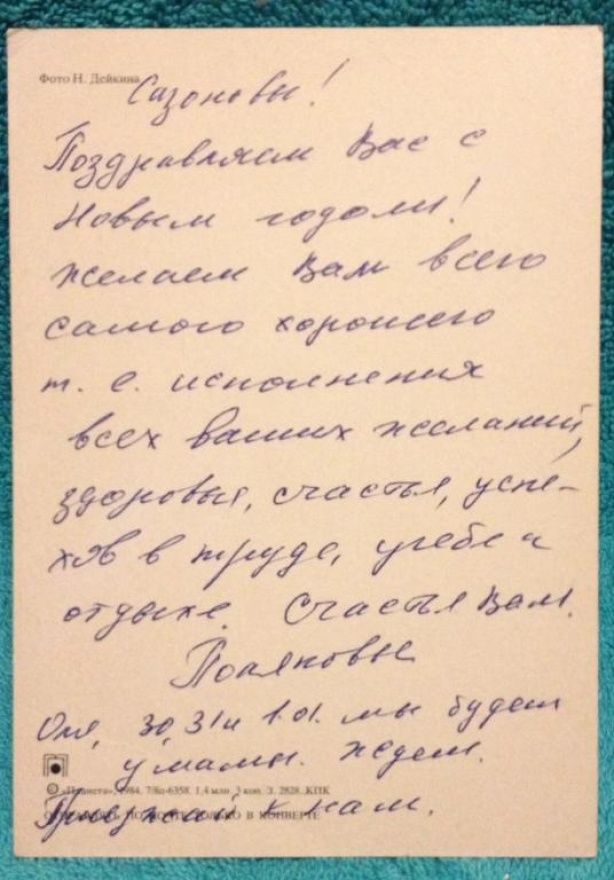 Фото Н. Дейкина
Сазоновы!
Поздравляем Вас с
Новым годом!
Желаем Вам всего
самого хорошего
т. е. исполнения
всех ваших желаний,
здоровья, счастья, успе-
хов в труде, учебе и
отдыхе. Счастья Вам.
Поляковы
Оля, 30, 31 и 1.01. мы будем
у мамы. Ждем.
© «Планета», 1984. 7/8о-6358. 1,4 млн. 3 коп. З. 2828. КПК
Приезжай к нам.
ОТПРАВЛЯТЬ ПО ПОЧТЕ ТОЛЬКО В КОНВЕРТЕ